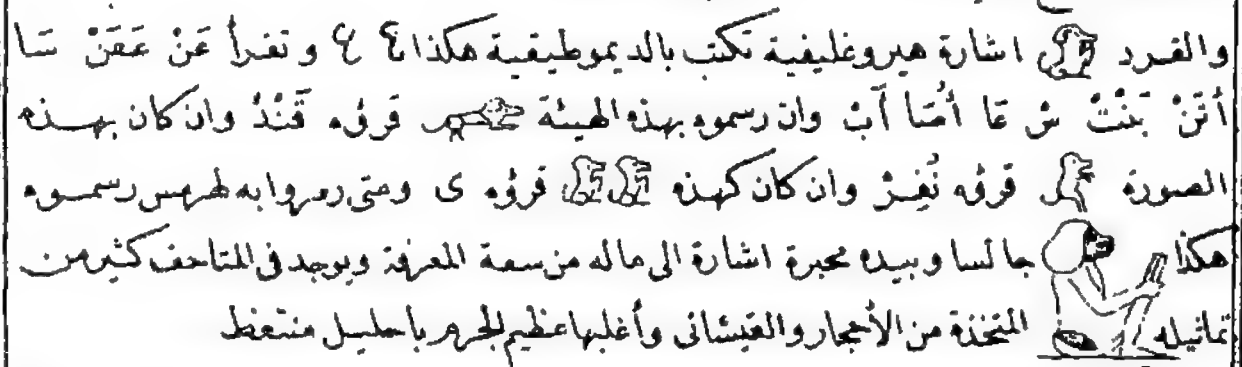 والقرد اشارة هيروغليفية تكتب بالديموطيقية هكذا و تقرأ عَنْ عَفَنْ سَا
أَنَنْ بَنْتْ ش عَا أُمَتَا آبْ وان رسموه بهذه الهيئة قرؤه قَنْدْ وان كان بهــذه
الصورة قرؤه نُفِـرْ وان كان كهذه قرؤه ى ومتى رمزوا به لهرمس رسمــوه
هكذا جالسا وبيده محبرة اشارة الى ماله من سعة المعرفة ويوجد فى المتاحف كثير من
تماثيله المتخذة من الأحجار والقيشانى وأغلبها عظيم الجرم باحليل منتعظ